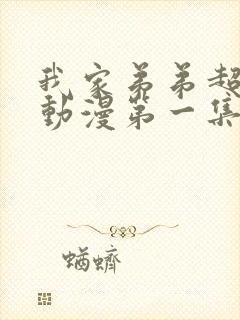 我家弟弟超
動漫第一集
蝤蠐